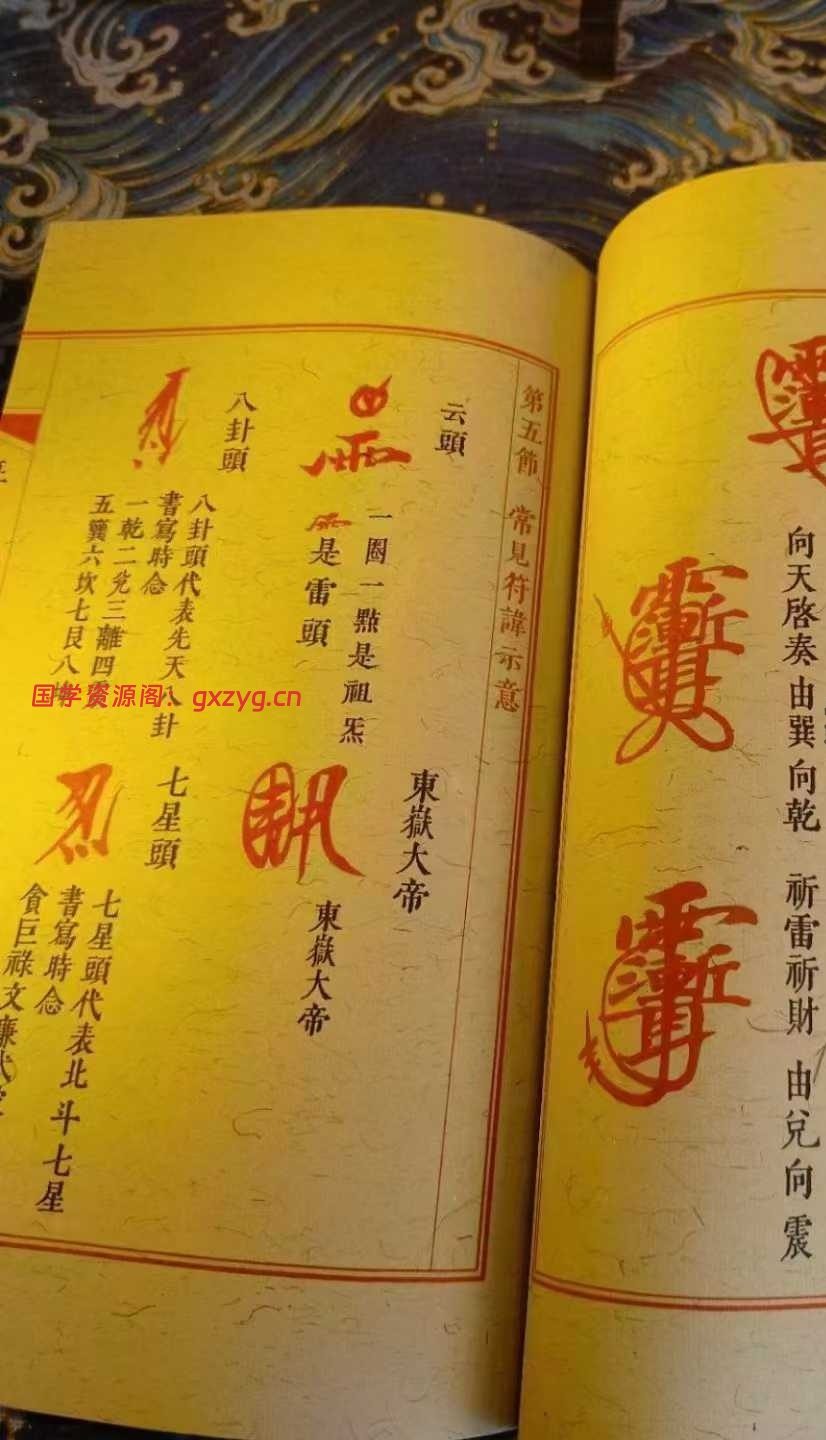 向天啓奏由巽向乾
祈雷祈財
由兌向震
第五節
常見符諱示意
云頭
一圈一點是祖炁
是雷頭
八卦頭
八卦頭代表先天八卦
書寫時念
一乾二兌三離四震
五襄六坎七艮八
東嶽大帝
東嶽大帝
七星頭
七星頭代表北斗七星
書寫時念
貪巨祿文廉武
国学资源阁：gxzyg.cn